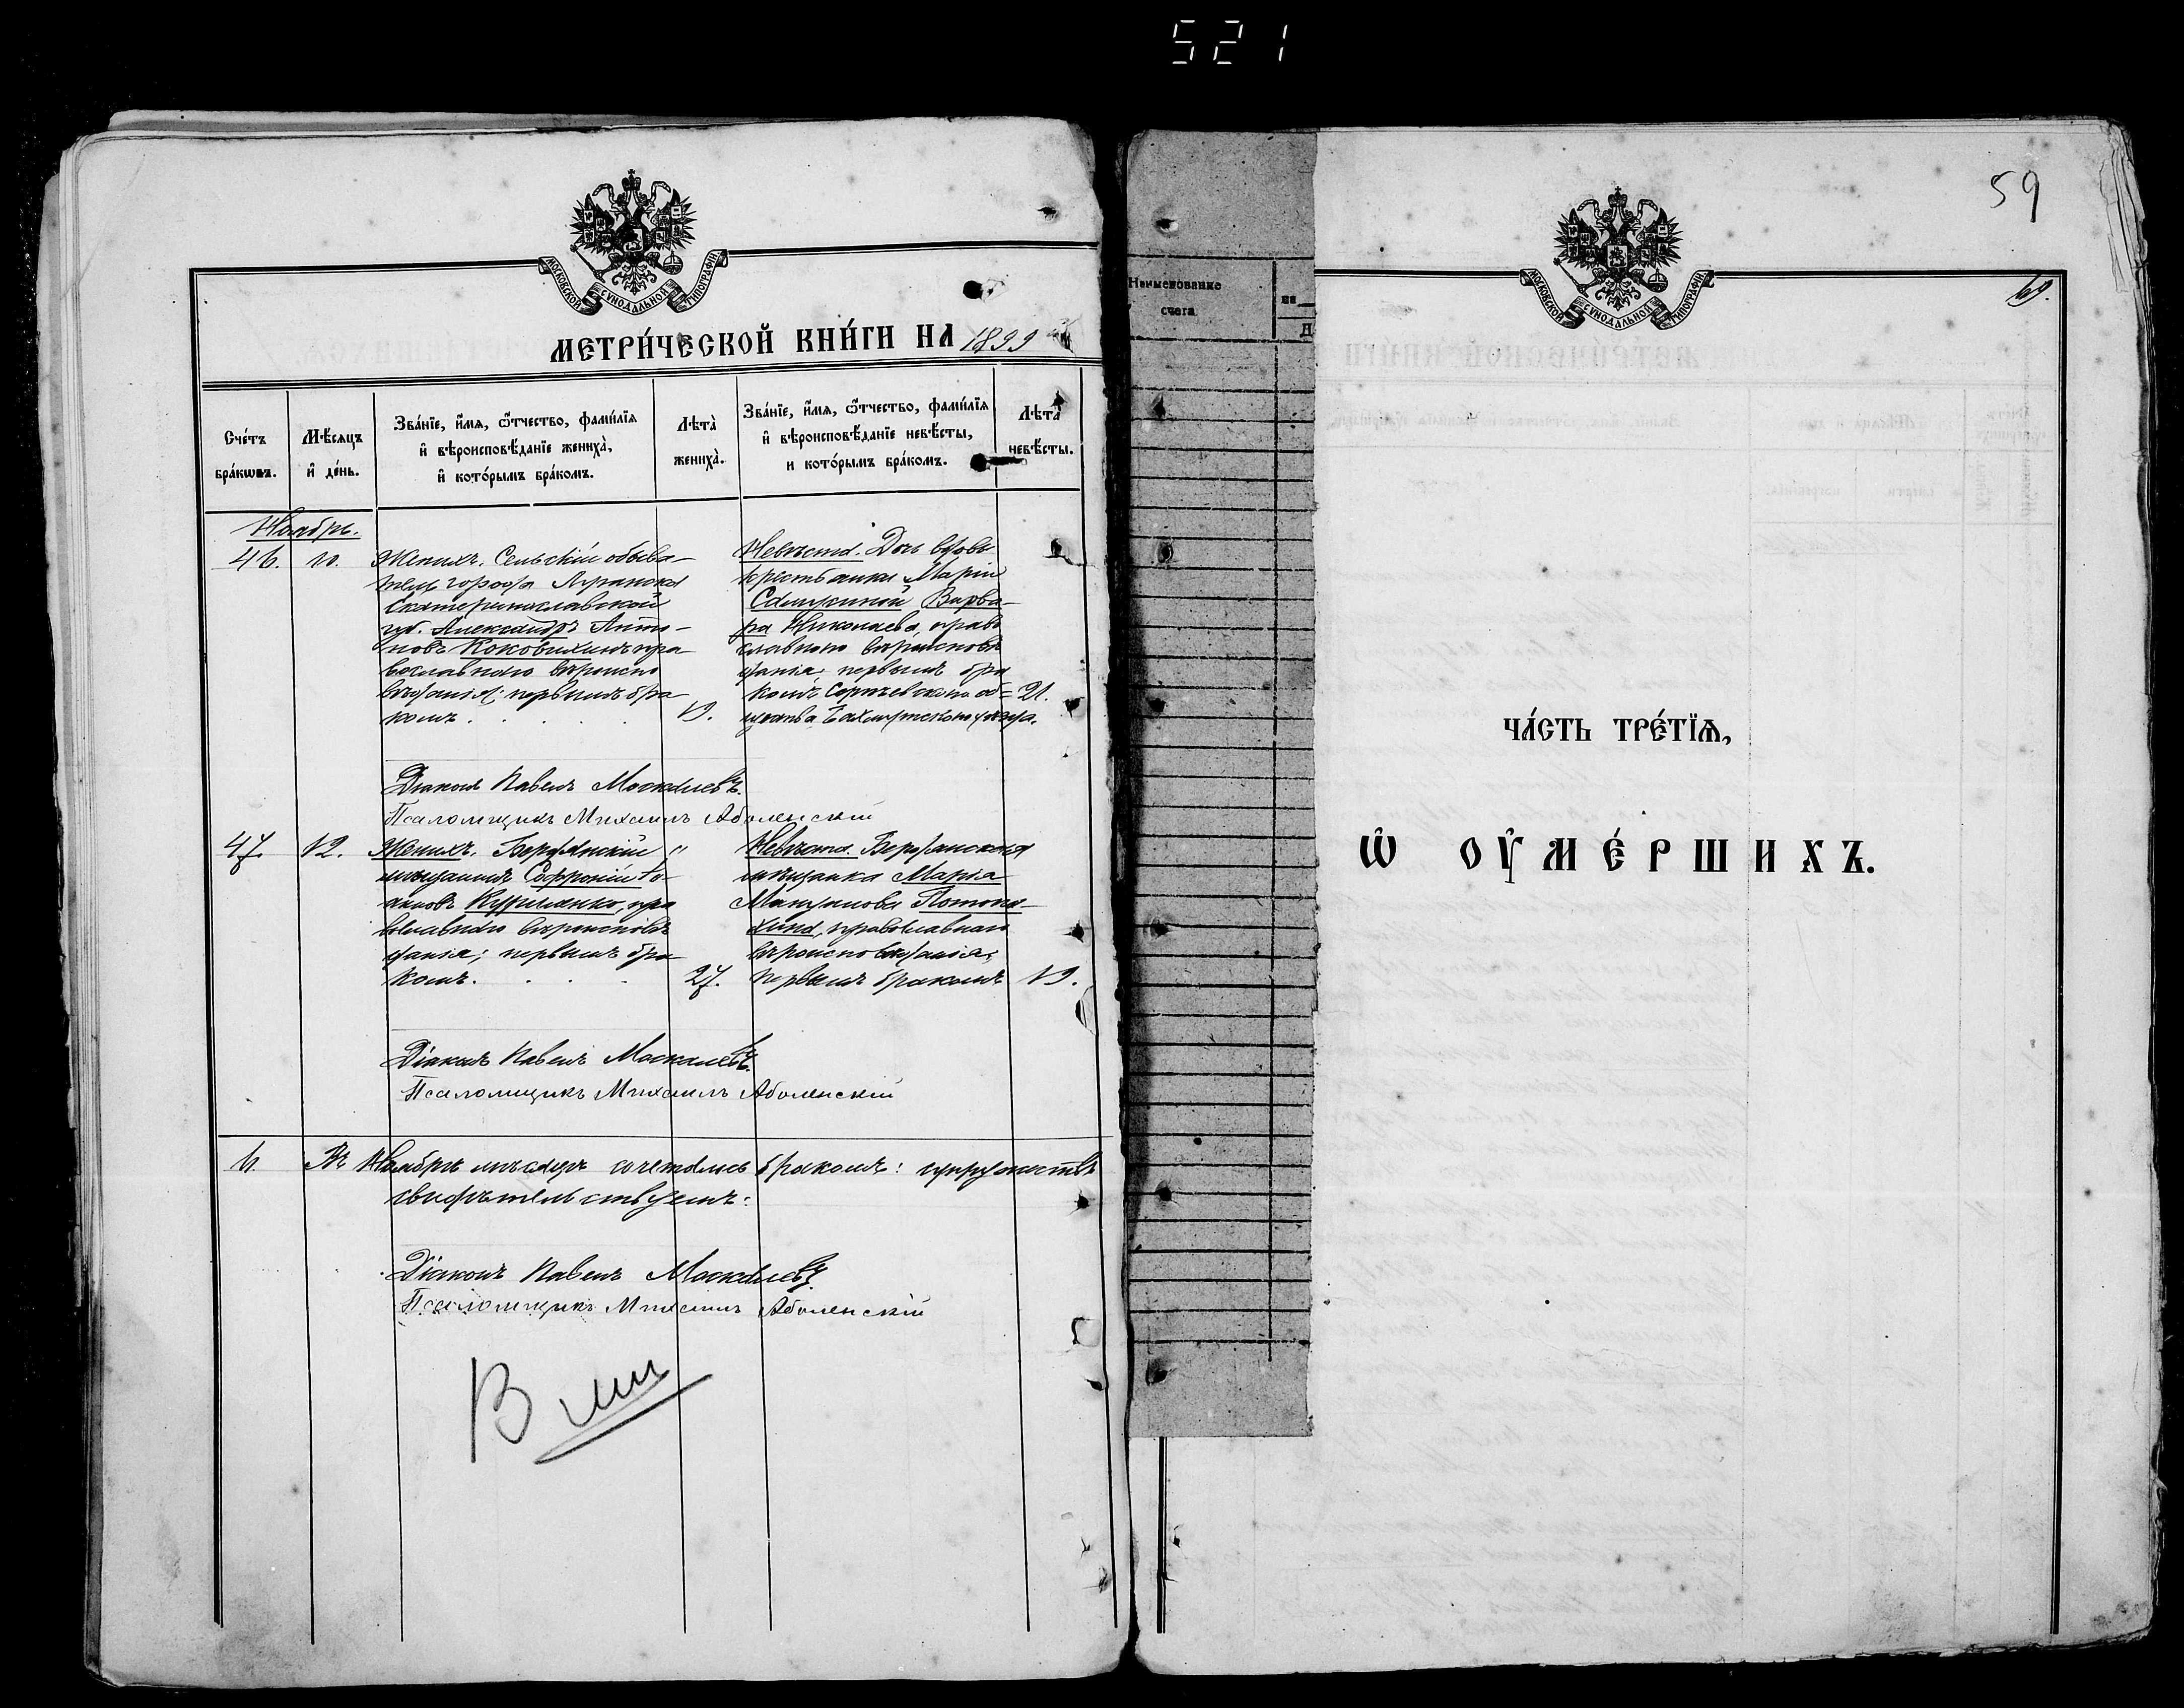 521
МОСКОВСКОЙ СУНОДАЛЬНОЙ ТИПОГРАФІИ
МЕТРИ́ЧЕСКОЙ КНИ́ГИ НА 1899
Сче́тъ бра́кωвъ.
Мѣ́сяцъ и де́нь.
Зва́нїе, и́мѧ, ѿтчество, фами́лїѧ
и҆ вѣроисповѣ́данїе жениха̀,
и҆ кото́рымъ бра́комъ.
Лѣта̀ жениха̀.
Зва́нїе, и́мѧ, ѿтчество, фами́лїѧ
и҆ вѣроисповѣ́данїе невѣ́сты,
и кото́рымъ бра́комъ.
Лѣта̀ невѣ́сты.
Ноябрь.
46. 10.
Женихъ. Сельскій обыва-
тель города Луганска
Екатеринославской
губ. Александръ Анто-
новъ Коковихинъ пра-
вославнаго вѣроиспо
вѣданія; первымъ бра-
комъ. 19.
Невѣста. Дочь вдовы
крестьянки Маріи
Варва-
ра Николаева, право
славнаго вѣроисповѣ
данія; первымъ бра
комъ об= 21.
щества Бахмутскаго уѣзда.
Діаконъ Павелъ Москалевъ.
Псаломщикъ Михаилъ Аболенскій
47. 12.
Женихъ. Бердянскій
мѣщанинъ Софроній Іо-
акимовъ пра
вославнаго вѣроисповѣ
данія; первымъ бра-
комъ. 27.
Невѣста. Бердянская
мѣщанка Марія
православнаго
вѣроисповѣданія;
первымъ бракомъ 19.
Діаконъ Павелъ Москалевъ.
Псаломщикъ Михаилъ Аболенскій
6. Въ Ноябрѣ мѣсяцѣ сочетались бракомъ:
свидѣтельствуемъ:
Діаконъ Павелъ Москалевъ.
Псаломщикъ Михаилъ Аболенскій
Наименование
счета
59
МОСКОВСКОЙ СУНОДАЛЬНОЙ ТИПОГРАФІИ
ЧА́СТЬ ТРЕ́ТЇѦ,
Ѡ҆ ОУ҆МЕ́РШИХЪ.